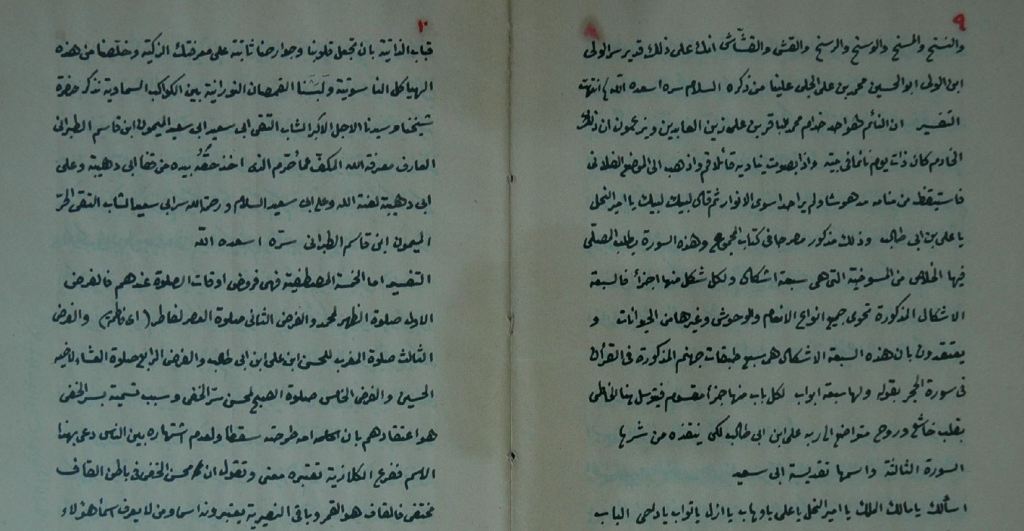 ٩
والنسخ والمسخ والوسخ والرسخ والقش والقشاش انك على ذلك قدير سر الولي
ابن الولي ابو الحسين محمد بن علي الجلي علينا من ذكره السلام سره اسعده الله انتهت
التفسير ان النائم هو احد خدام محمد الباقر بن علي زين العابدين ويزعمون ان ذلك
الخادم كان ذات يوم نائما في بيته واذا بصوت يناديه قائلا قم واذهب الى الموضع الفلاني
فاستيقظ من منامه مدهوشا ولم ير احدا سوى الانوار ثم قال لبيك لبيك يا امير النحل
يا علي بن ابي طالب وذلك مذكور مصرحا في كتاب المجموع وهذه السورة يطلب المصلي
فيها الخلاص من المسوخية التي هي سبعة اشكال ولكل شكل منها اجزا فالسبعة
الاشكال المذكورة تحوي جميع انواع الانعام والوحوش وغيرها من الحيوانات و
يعتقدون بان هذه السبعة الاشكال هي سبع طبقات جهنم المذكورة في القران
في سورة الحجر بقوله ولها سبعة ابواب لكل باب منها جزأ مقسوم فيتوسل بها الخاطي
بقلب خاشع وروح متواضع الى ربه علي ابن ابي طالب لكي ينقذه من شرها
السورة الثالثة واسمها تقديسة ابي سعيد
اسألك يا مالك الملك يا امير النحل يا علي يا وهاب يا ازل يا تواب يا داحي الباب
١٠
بان تجعل قلوبنا وجوارحنا ثابتة على معرفتك الزكية وخلصنا من هذه
الهياكل الناسوتية ولبسنا القمصان النورانية بين الكواكب السماوية نذكر حضرة
شيخنا وسيدنا الاجل الاكبر الشاب التقي ابي سعيد ابي سعيد الميمون ابن قاسم الطبراني
العارف معرفة الله المكفّ مما حرم الذي اخذ حقه بيده من قفا ابي دهيبة وعلى
ابي دهيبة لعنة الله وعلى ابي سعيد السلام ورحمة الله سر ابي سعيد الشاب التقي الحر
الميمون ابن قاسم الطبراني سرّه اسعده الله
التفسير اما الخمسة المصطفية فهي فروض اوقات الصلوة عندهم فالفرض
الاول صلوة الظهر لمحمد والفرض الثاني صلوة العصر لفاطر (اي فاطمة) والفرض
الثالث صلوة المغرب للحسن ابن علي ابن ابي طالب والفرض الرابع صلوة العشاء لاخيه
الحسين والفرض الخامس صلوة الصبح لمحسن سر الخفي وسبب تسميته بسر الخفي
هو اعتقادهم بان امه طرحته سقطا ولعدم اشتهاره بين الناس دعي بهذا
الاسم ففرع الكلازية تعتبره معنى وتقول ان محسن الخفي في باطن القاف
مختفي فالقاف هو القمر وباقي النصيرية يعتبرونه اسما ومن لا يعرف اسما هؤلاء